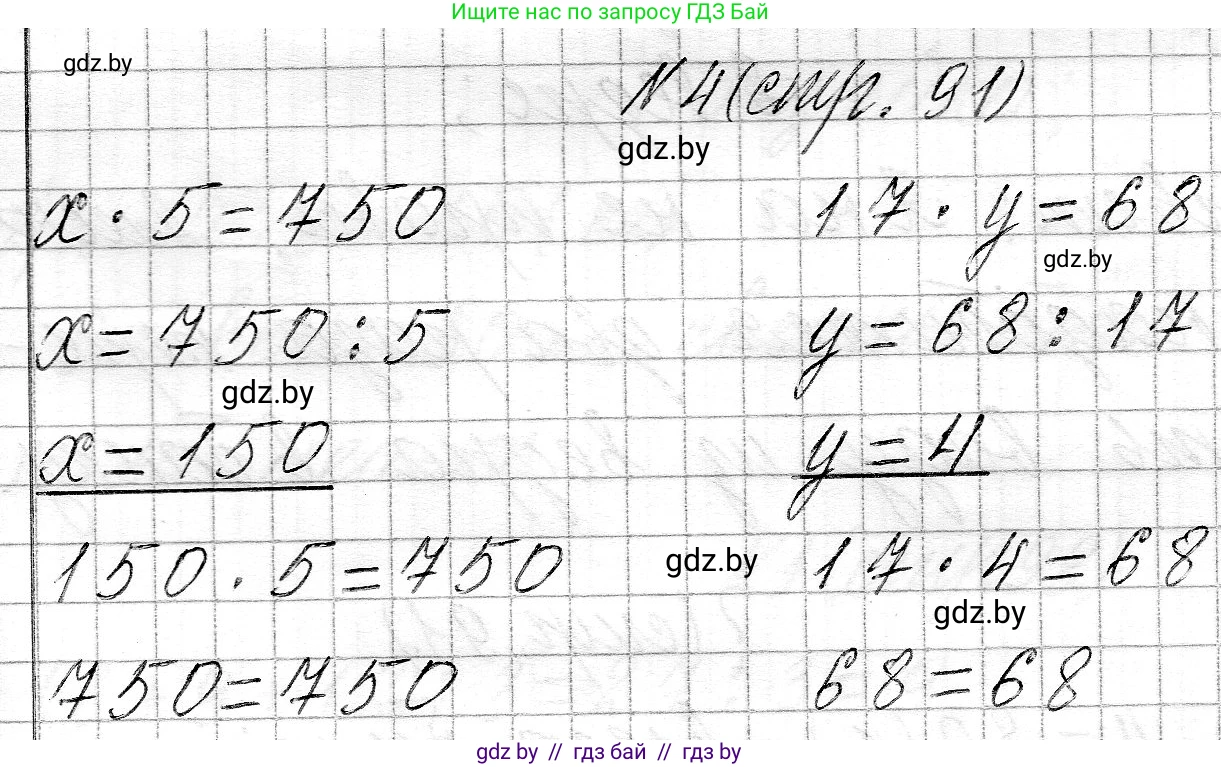 Ищите нас по запросу ГДЗ Бай
gdz.by
№4 (стр. 91)
gdz.by
x · 5 = 750
17 · y = 68
gdz.by
x = 750 : 5
y = 68 : 17
gdz.by
x = 150
y = 4
150 · 5 = 750
gdz.by
17 · 4 = 68
gdz.by
750 = 750
68 = 68
gdz.by // гдз бай // gdz.by